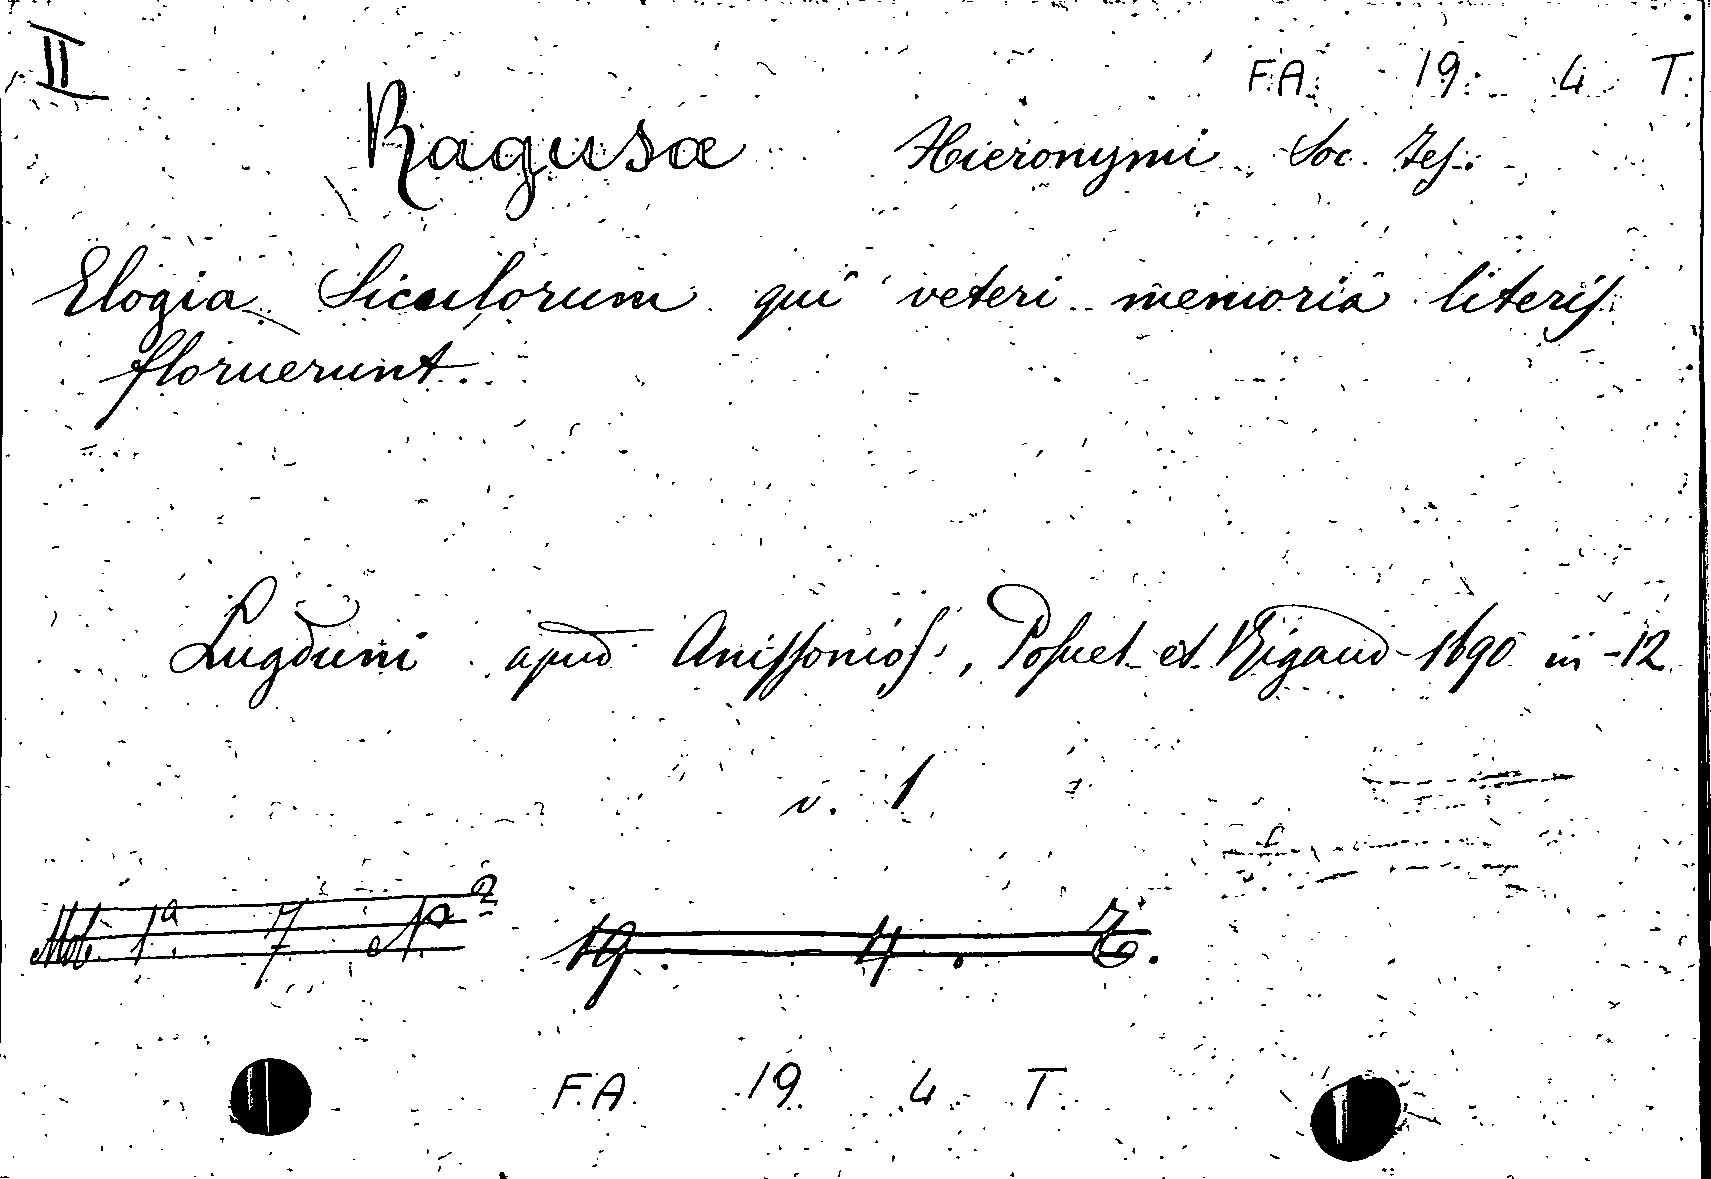 II
F.A. 19. 4 T.
Ragusae Hieronymi Soc. Jes.
Elogia Siculorum qui veteri memoriâ literis
floruerunt.
Lugduni apud Anissonios, Posuel et Rigaud 1690 in-12
v. 1
19. 4. T.
F.A. 19 4 T.